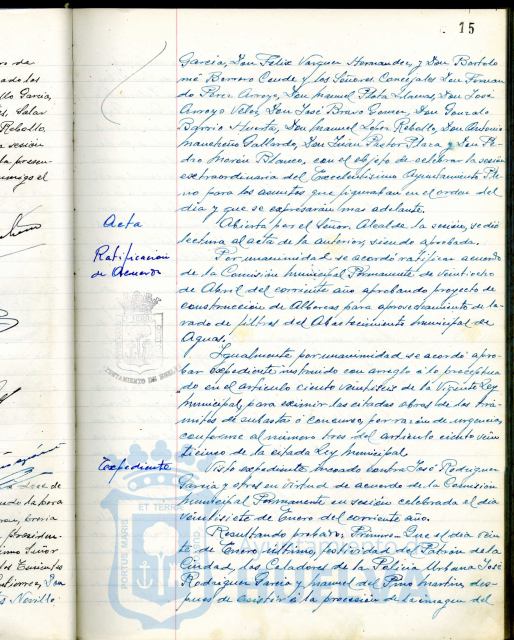 15
García, Don Félix Vazquez Hernandez, y Don Bartolo
mé Borrero Conde y los Señores Concejales Don Fernan
do Perez Arroyo, Don Manuel Plata Llamas, Don José
Arroyo Velez, Don José Bravo Gomez, Don Gonzalo
Barrio Huerta, Don Manuel Rebollo, Don Antonio
Mancheño Gallardo, Don Juan Pastor Plaza y Don Pe
dro Morón Blanco, con el objeto de celebrar la sesión
extraordinaria del Excelentísimo Ayuntamiento Ple
no para los asuntos que figuraban en el orden del
día y que se expresarán mas adelante.
Acta
Abierta por el Señor Alcalde la sesión, se dió
lectura al acta de la anterior, siendo aprobada.
Ratificación
de Acuerdo
Por unanimidad se acordó ratificar acuerdo
de la Comisión Municipal Permanente de veintiocho
de Abril del corriente año aprobando proyecto de
construcción de Albercas para aprovechamiento de la-
vado de filtros del Abastecimiento Municipal de
Aguas.
Igualmente por unanimidad se acordó apro-
bar expediente instruido con arreglo á lo preceptua-
do en el artículo ciento veintiseis de la Vigente Ley
Municipal, para eximir las citadas obras de los trá-
mites de subasta ó concurso, por razón de urgencia,
conforme al número tres del artículo ciento vein
ticinco de la citada Ley Municipal.
Expediente
Visto expediente incoado contra José Rodriguez
García y otros en virtud de acuerdo de la Comisión
Municipal Permanente en sesión celebrada el día
veintisiete de Enero del corriente año.
Resultando probado: Primero: Que el día vein
te de Enero último, festividad del Patrón de la
Ciudad, los Celadores de la Policia Urbana José
Rodriguez García y Manuel del Pino Martin, des-
pues de asistir á la procesión de la imagen del
AYUNTAMIENTO DE HUELVA
PORTUS MARIS ET TERRAE CUSTODIA
HUELVA